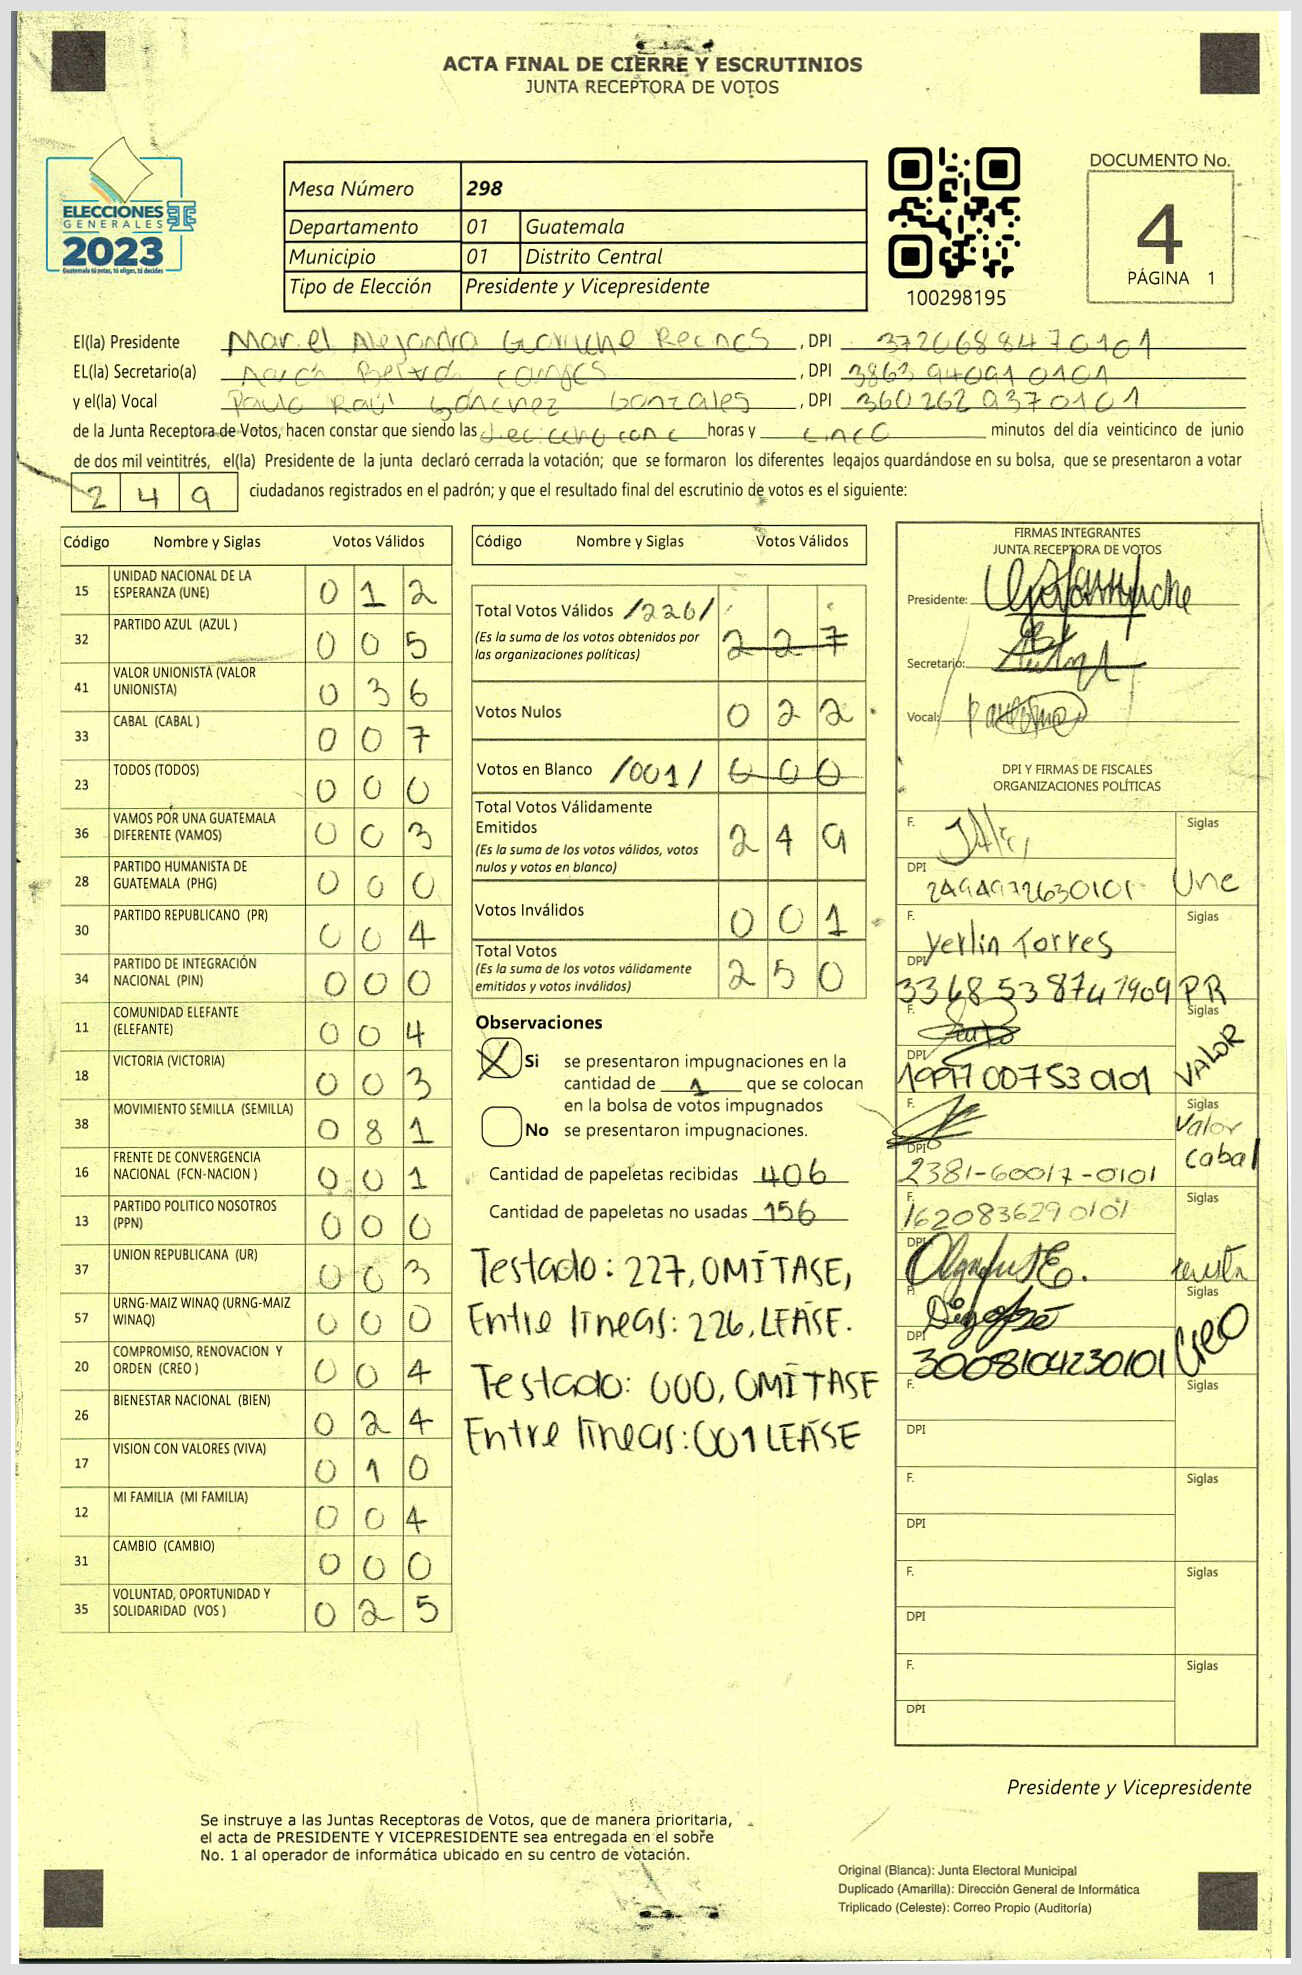 ACTA FINAL DE CIERRE Y ESCRUTINIOS
JUNTA RECEPTORA DE VOTOS
ELECCIONES
GENERALES
2023
Guatemala tú votas, tú eliges, tú decides
Mesa Número 298
Departamento 01 Guatemala
Municipio 01 Distrito Central
Tipo de Elección Presidente y Vicepresidente
100298195
DOCUMENTO No.
4
PÁGINA 1
El(la) Presidente Alejandra , DPI 3720688470101
EL(la) Secretario(a) , DPI 3863940910101
y el(la) Vocal Paulo Raúl Gonzales , DPI 3602629370101
de la Junta Receptora de Votos, hacen constar que siendo las horas y cinco minutos del día veinticinco de junio
de dos mil veintitrés, el(la) Presidente de la junta declaró cerrada la votación; que se formaron los diferentes legajos guardándose en su bolsa, que se presentaron a votar
249 ciudadanos registrados en el padrón; y que el resultado final del escrutinio de votos es el siguiente:
Código Nombre y Siglas Votos Válidos
15 UNIDAD NACIONAL DE LA ESPERANZA (UNE) 012
32 PARTIDO AZUL (AZUL ) 005
41 VALOR UNIONISTA (VALOR UNIONISTA) 036
33 CABAL (CABAL ) 007
23 TODOS (TODOS) 000
36 VAMOS POR UNA GUATEMALA DIFERENTE (VAMOS) 003
28 PARTIDO HUMANISTA DE GUATEMALA (PHG) 000
30 PARTIDO REPUBLICANO (PR) 004
34 PARTIDO DE INTEGRACIÓN NACIONAL (PIN) 000
11 COMUNIDAD ELEFANTE (ELEFANTE) 004
18 VICTORIA (VICTORIA) 003
38 MOVIMIENTO SEMILLA (SEMILLA) 081
16 FRENTE DE CONVERGENCIA NACIONAL (FCN-NACION ) 001
13 PARTIDO POLITICO NOSOTROS (PPN) 000
37 UNION REPUBLICANA (UR) 003
57 URNG-MAIZ WINAQ (URNG-MAIZ WINAQ) 000
20 COMPROMISO, RENOVACION Y ORDEN (CREO ) 004
26 BIENESTAR NACIONAL (BIEN) 024
17 VISION CON VALORES (VIVA) 010
12 MI FAMILIA (MI FAMILIA) 004
31 CAMBIO (CAMBIO) 000
35 VOLUNTAD, OPORTUNIDAD Y SOLIDARIDAD (VOS ) 025
Código Nombre y Siglas Votos Válidos
Total Votos Válidos /226/ 227
(Es la suma de los votos obtenidos por
las organizaciones políticas)
Votos Nulos 022
Votos en Blanco /001/ 000
Total Votos Válidamente
Emitidos 249
(Es la suma de los votos válidos, votos
nulos y votos en blanco)
Votos Inválidos 001
Total Votos 250
(Es la suma de los votos válidamente
emitidos y votos inválidos)
Observaciones
X Si se presentaron impugnaciones en la
cantidad de 1 que se colocan
en la bolsa de votos impugnados
No se presentaron impugnaciones.
Cantidad de papeletas recibidas 406
Cantidad de papeletas no usadas 156
Testado: 227, OMÍTASE,
Entre líneas: 226, LEASE.
Testado: 000, OMÍTASE
Entre líneas: 001 LEASE
FIRMAS INTEGRANTES
JUNTA RECEPTORA DE VOTOS
Presidente:
Secretario:
Vocal:
DPI Y FIRMAS DE FISCALES
ORGANIZACIONES POLÍTICAS
F. Siglas
DPI Une
F. Yerlin Torres Siglas
DPI 3368538741909 PR
F. Siglas
DPI 1997007530101 VALOR
F. Siglas
Valor
DPI 2381-60017-0101 Cabal
F. 1620836290101 Siglas
DPI
F. Siglas
DPI 3008104230101 CREO
F. Siglas
DPI
F. Siglas
DPI
F. Siglas
DPI
F. Siglas
DPI
Presidente y Vicepresidente
Se instruye a las Juntas Receptoras de Votos, que de manera prioritaria,
el acta de PRESIDENTE Y VICEPRESIDENTE sea entregada en el sobre
No. 1 al operador de informática ubicado en su centro de votación.
Original (Blanca): Junta Electoral Municipal
Duplicado (Amarilla): Dirección General de Informática
Triplicado (Celeste): Correo Propio (Auditoría)